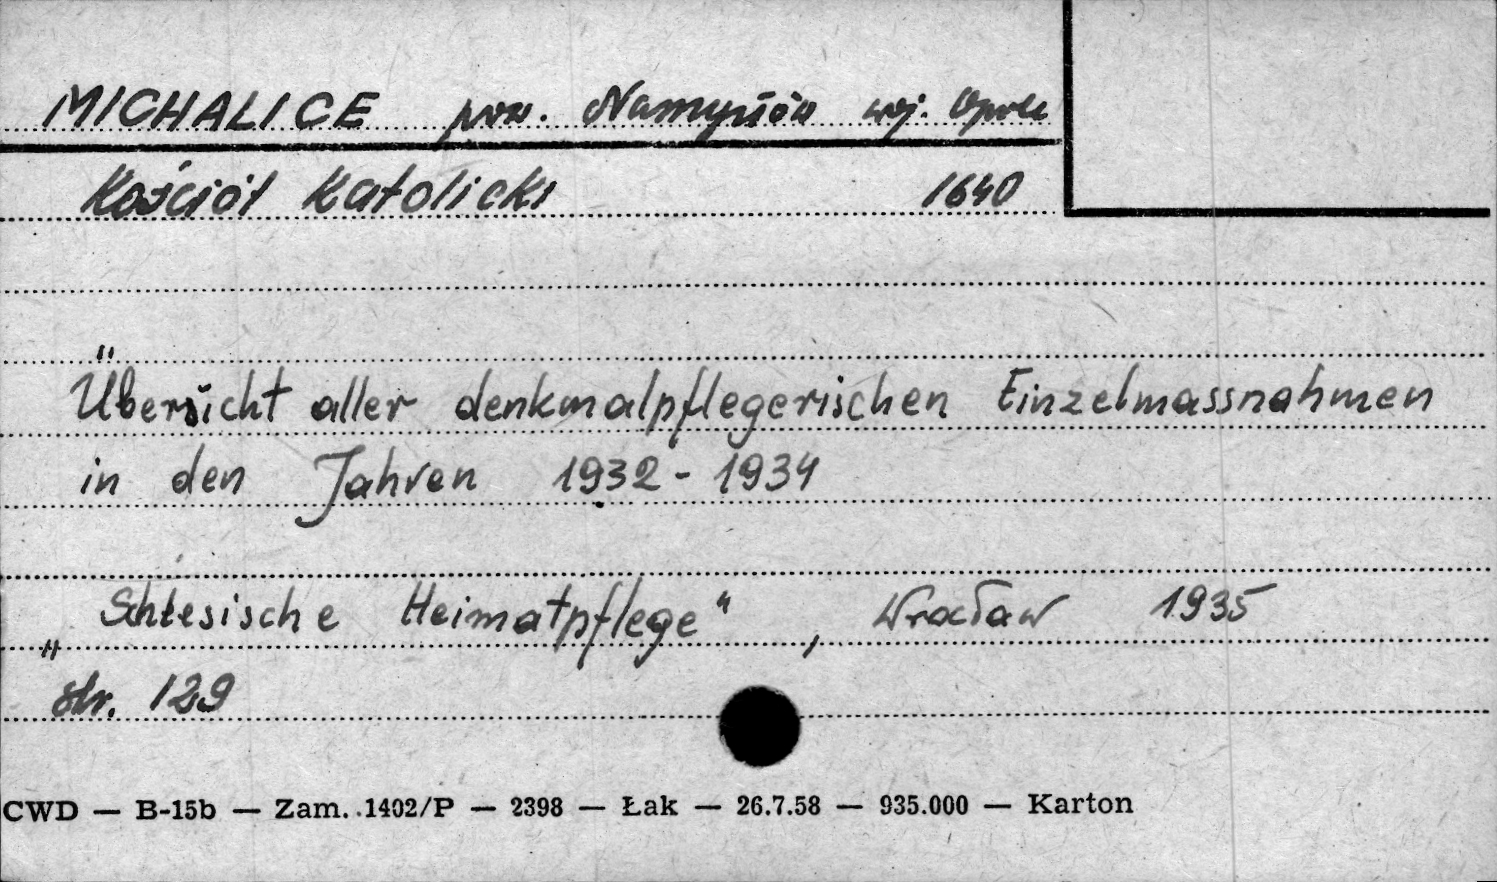 MICHALICE pow. Namysłów woj. Opole
Kościół Katolicki 1640
Übersicht aller denkmalpflegerischen Einzelmassnahmen
in den Jahren 1932 - 1934
„Schlesische Heimatpflege“, Wrocław 1935
str. 129
CWD — B-15b — Zam. 1402/P — 2398 — Łak — 26.7.58 — 935.000 — Karton